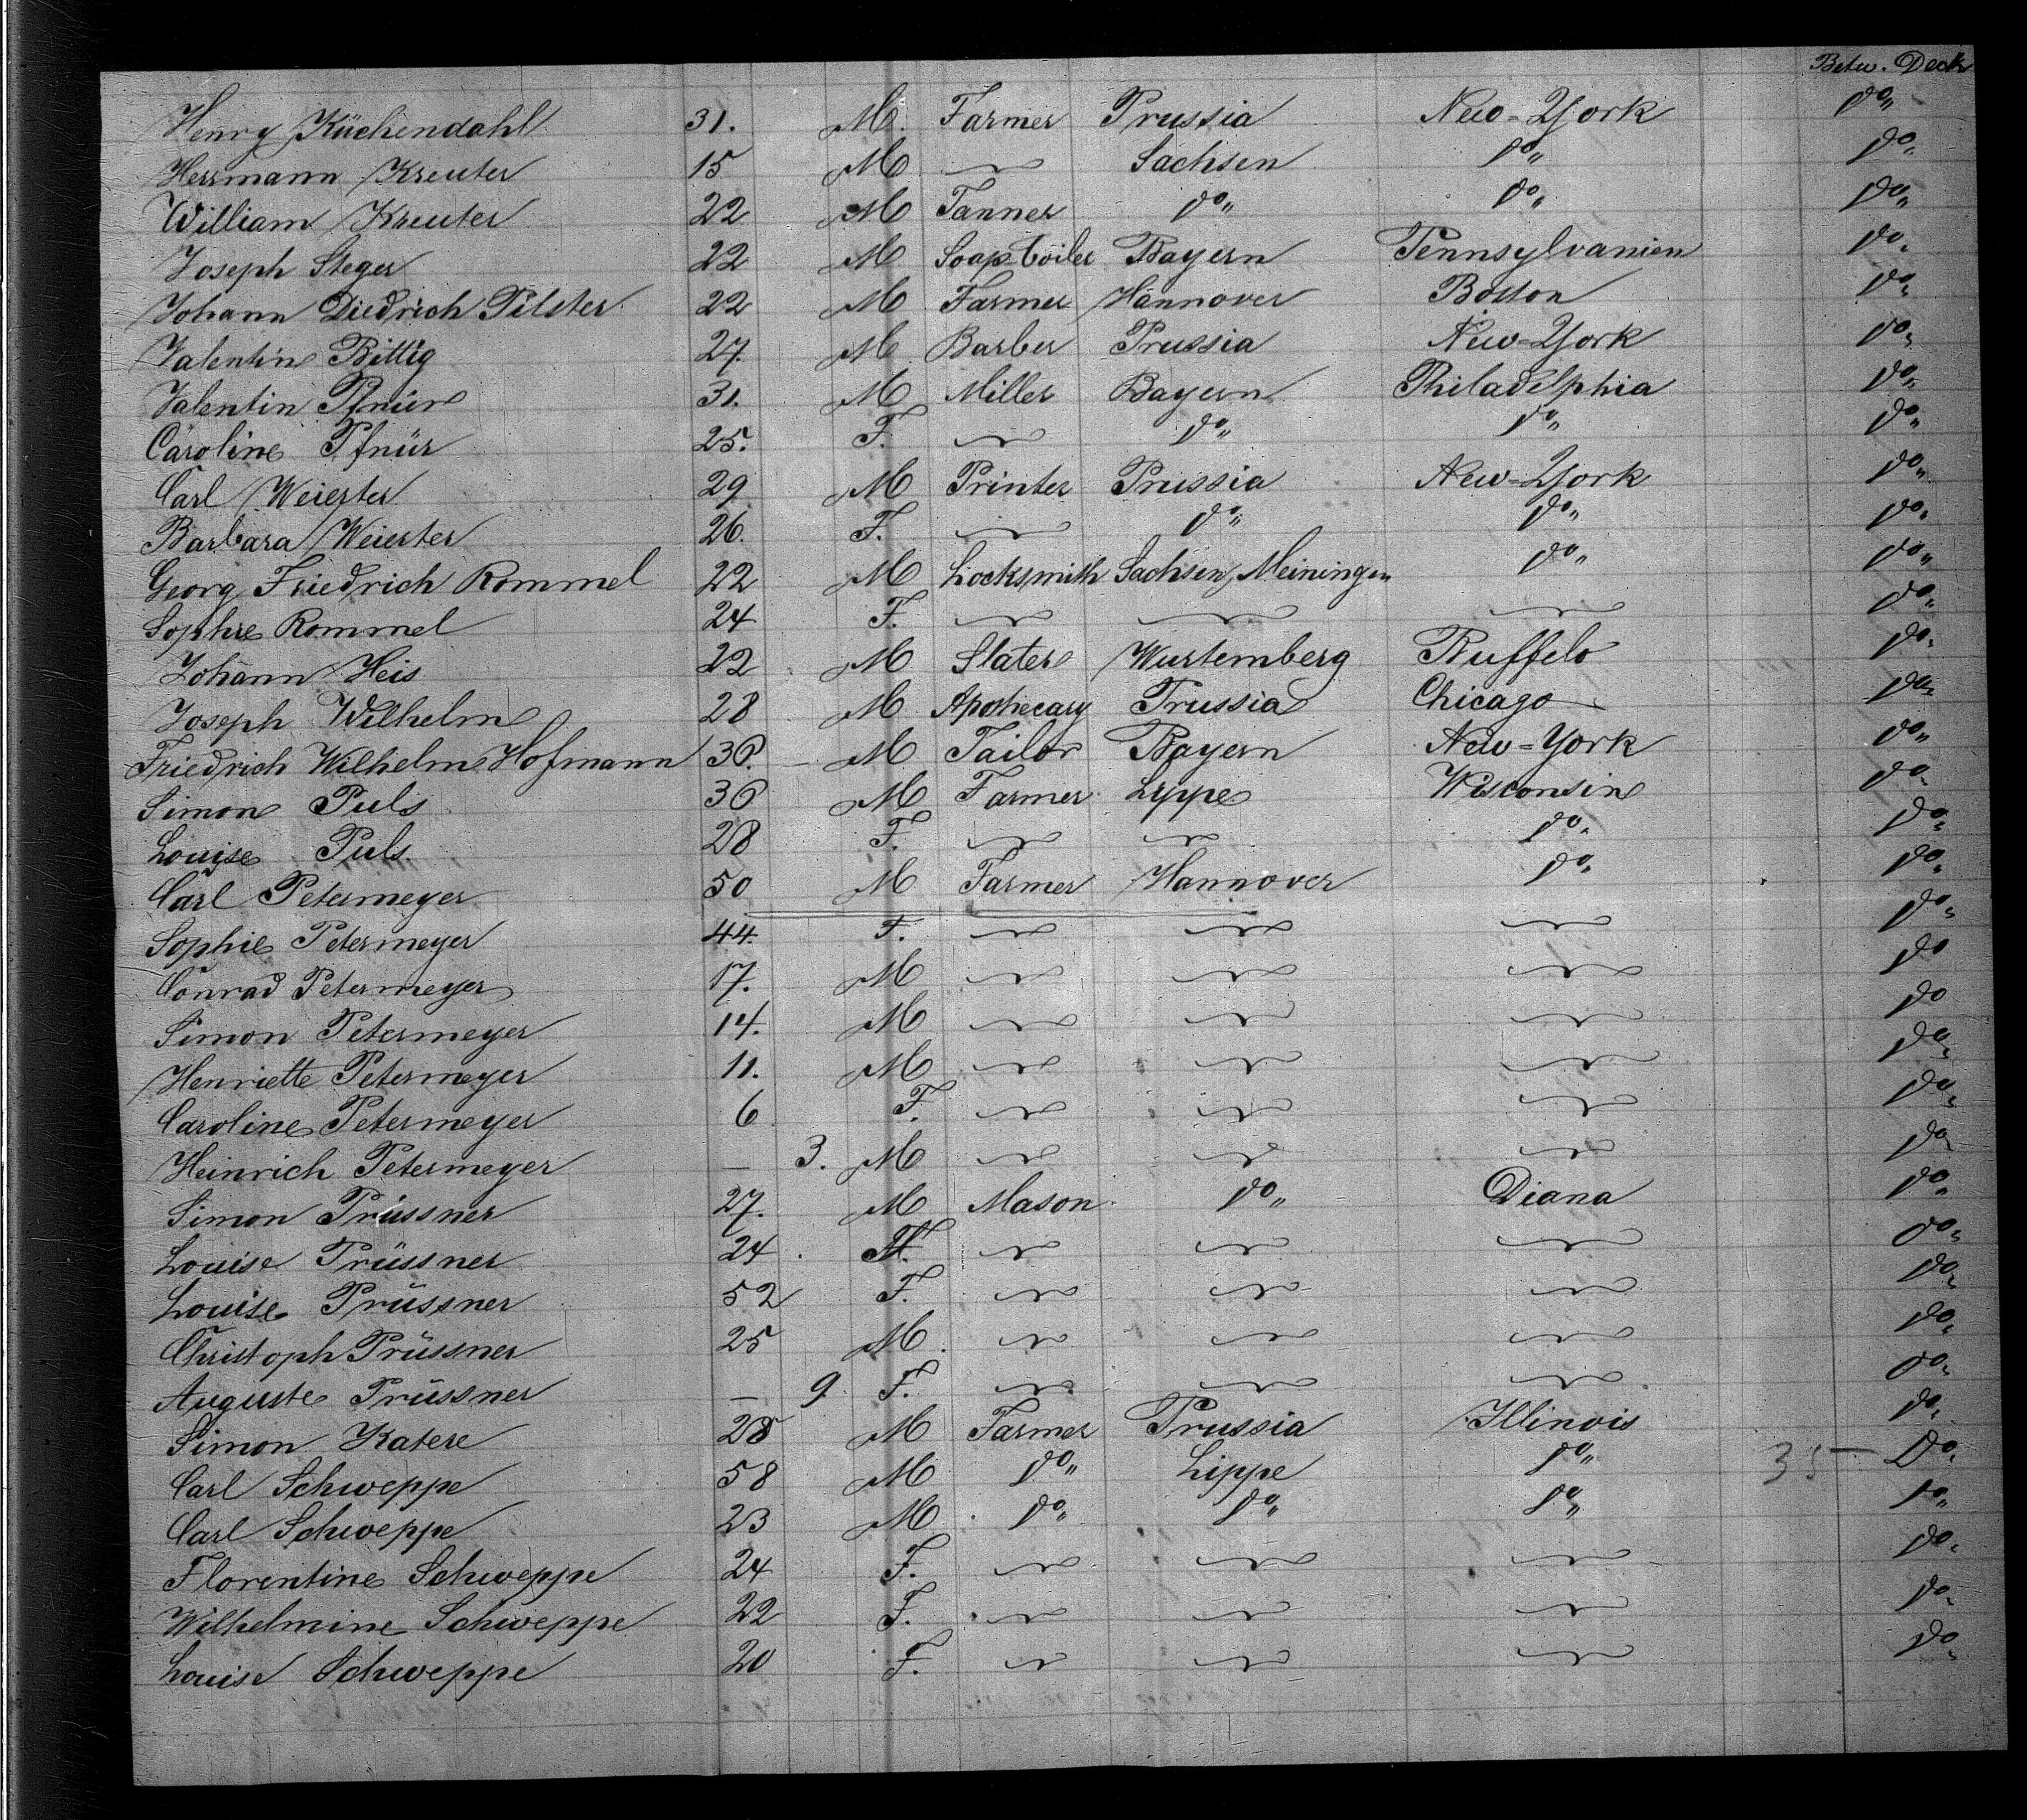 Betw. Deck
Henry Küchendahl 31. M. Farmer Prussia New-York do„
Herrmann Kreuter 15 M — Sachsen do„ do„
William Kreuter 22 M Tanner do„ do„ do„
Joseph Steger 22 M Soap-boiler Bayern Pennsylvanien do„
Johann Diedrich Pilster 22 M Farmer Hannover Boston do„
Valentin Bittig 27. M Barber Prussia New-York do„
Valentin Pfnür 31. M Miller Bayern Philadelphia do„
Caroline Pfnür 25. F. — do„ do„ do„
Carl Weierter 29 M Printer Prussia New-York do„
Barbara Weierter 26. F. — do„ do„ do„
Georg Friedrich Rommel 22 M Locksmith Sachsen, Meiningen do„ do„
Sophie Rommel 24 F. — — — do„
Johann Heis 22 M Slater Wurtemberg Buffelo do„
Joseph Wilhelm 28 M Apothecary Prussia Chicago do„
Friedrich Wilhelm Hofmann 30. M Tailor Bayern New-York do„
Simon Puls 30 M Farmer Lippe Wisconsin do„
Louise Puls. 28 F. — — do„ do„
Carl Petermeyer 50 M Farmer Hannover do„ do„
Sophie Petermeyer 44. F. — — — do„
Conrad Petermeyer 17. M — — — do
Simon Petermeyer 14. M — — — do
Henriette Petermeyer 11. M — — — do„
Caroline Petermeyer 6 F. — — — do„
Heinrich Petermeyer — 3. M — — — do„
Simon Prüssner 27. M Mason do„ Diana do„
Louise Prüssner 24 F. — — — do„
Louise Prüssner 52 F. — — — do„
Christoph Prüssner 25 M. — — — do„
Auguste Prüssner — 9 F. — — — do„
Simon Katere 28 M Farmer Prussia Illinois do„
Carl Schweppe 58 M do„ Lippe do„ 35 — do„
Carl Schweppe 23 M do„ do„ do„ do„
Florentine Schweppe 24 F. — — — do„
Wilhelmine Schweppe 22 F. — — — do„
Louise Schweppe 20 F. — — — do„